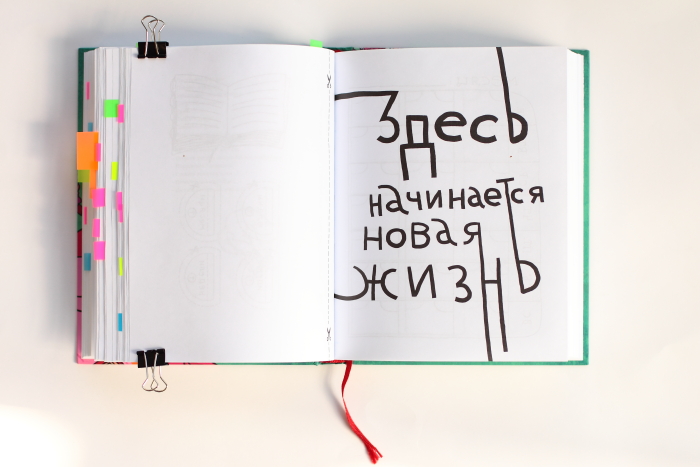 Здесь
начинается
новая
жизнь